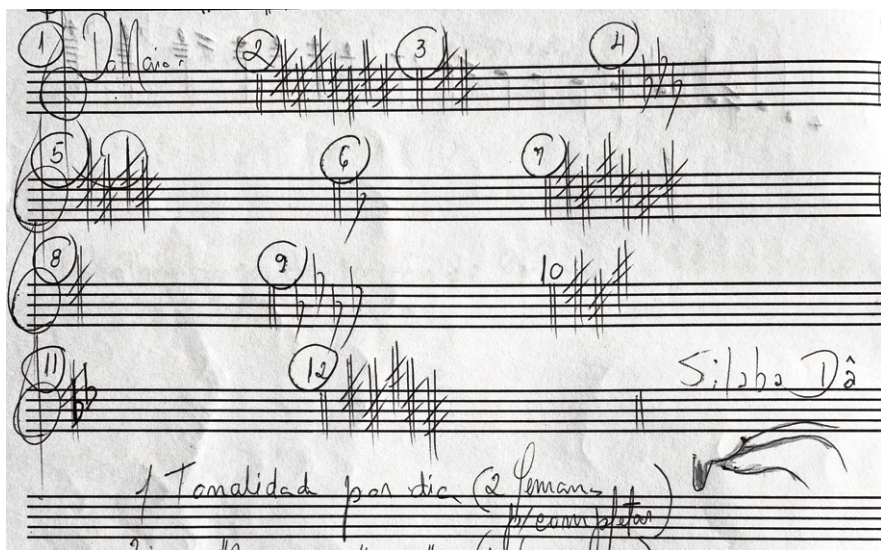 1 Dó Maior 2 3 4
5 6 7
8 9 10
11 12
Silaba Dâ
1 Tonalidad por dia (2 Semanas
p/completar)